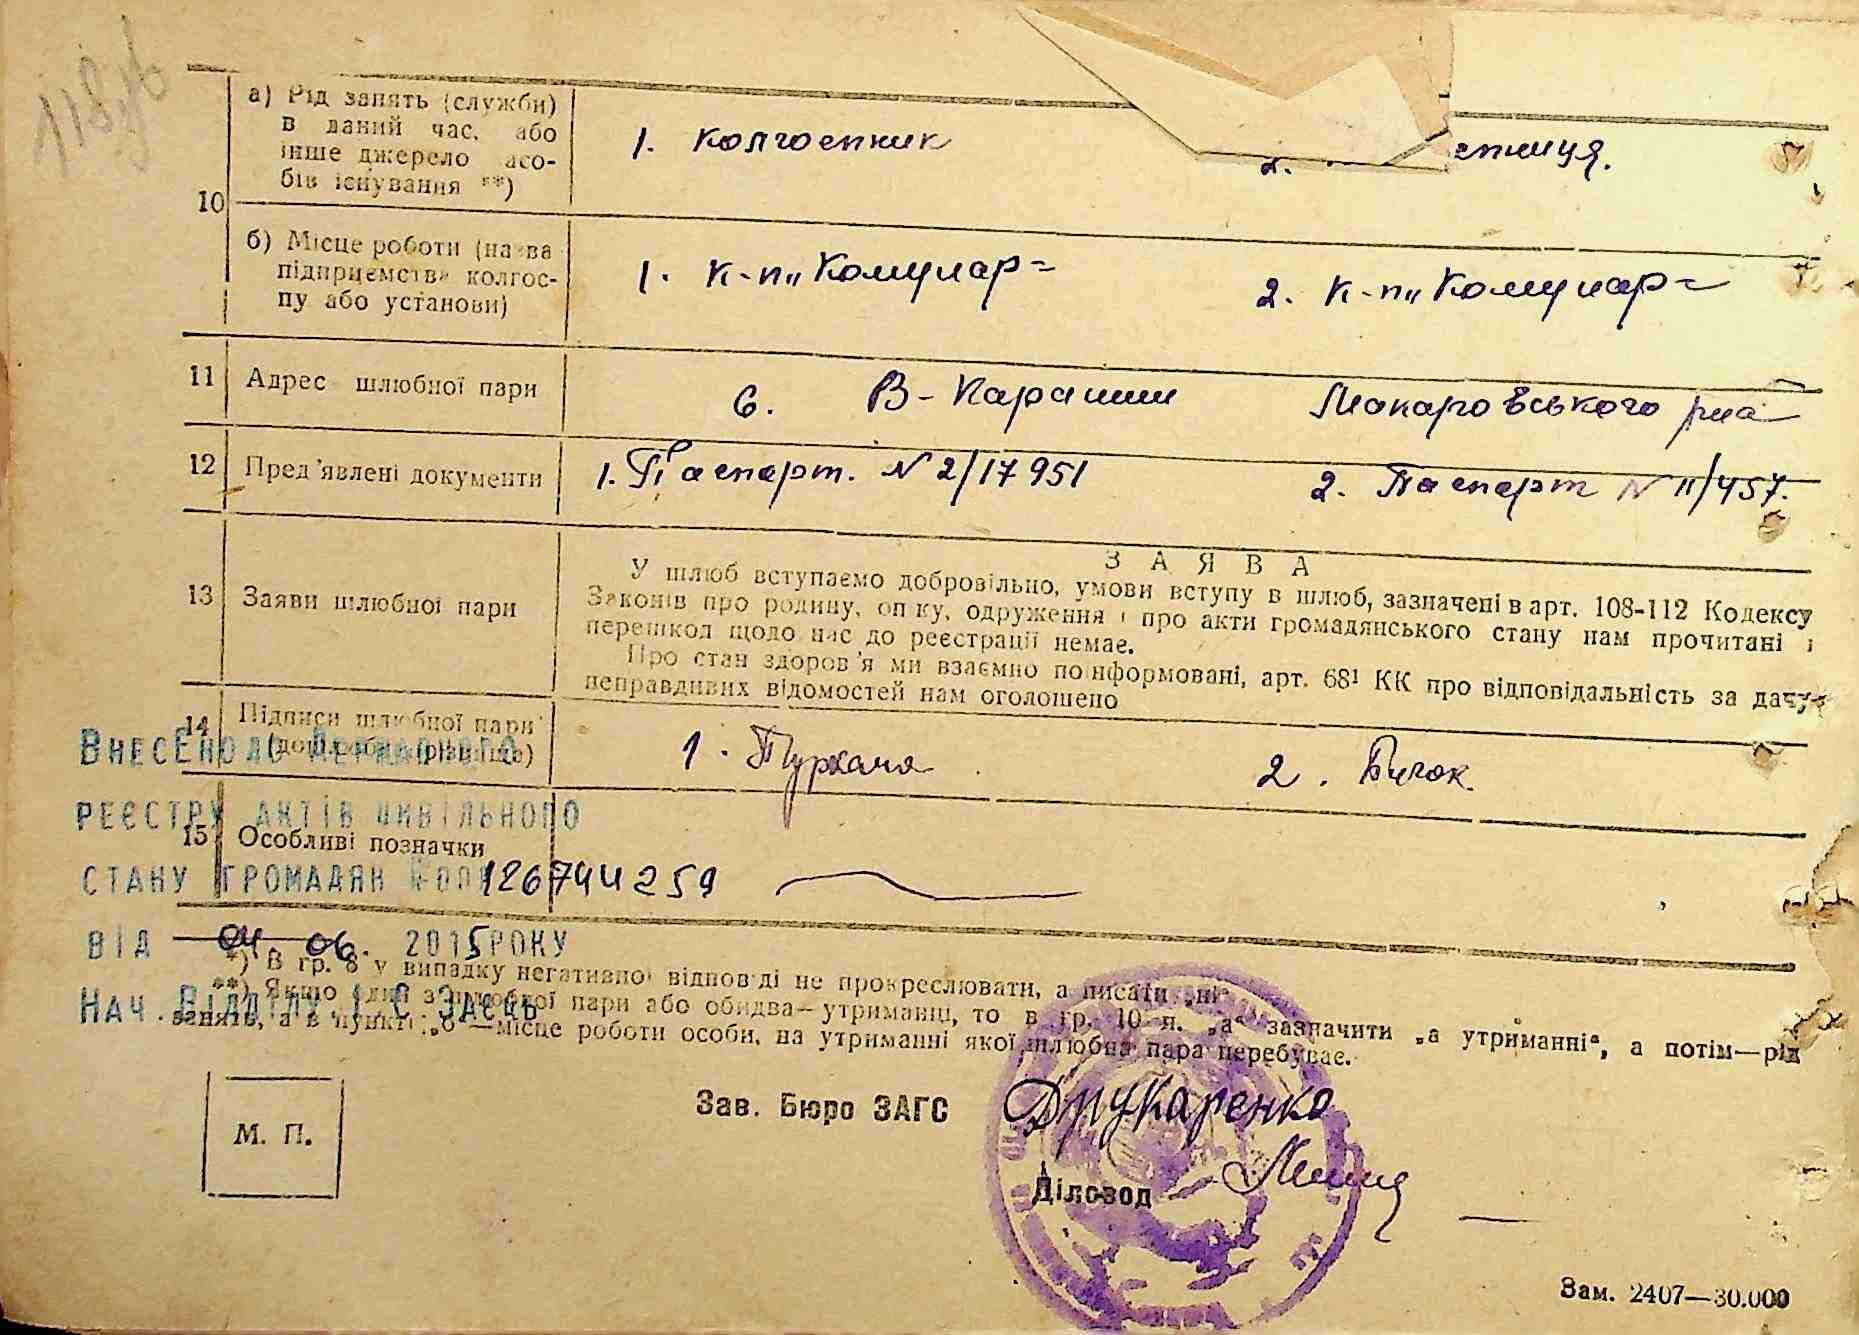 118
а) Рід занять (служби)
в даний час, або
інше джерело
бів існування **)
1. колгоспник
2.
10
б) Місце роботи (назва
підприємства колгос-
пу або установи)
1. к-п „Комунар"
2. к-п „Комунар"
11 Адрес шлюбної пари
с. В-Карашин Макаровського р-на
12 Пред'явлені документи
1. Паспорт. N 2/17951
2. Паспорт N 11/457.
13 Заяви шлюбної пари
ЗАЯВА
У шлюб вступаємо добровільно, умови вступу в шлюб, зазначені в арт. 108-112 Кодексу
Законів про родину, опіку, одруження і про акти громадянського стану нам прочитані і
перешкод щодо нас до реєстрації немає.
Про стан здоров'я ми взаємно поінформовані, арт. 68¹ КК про відповідальність за дачу
неправдивих відомостей нам оголошено
14 Підписи шлюбної пари
(дошлюбні прізвища)
1. Пурханя
2. Бичок.
15 Особливі позначки
Внесено до Державного
реєстру актів цивільного
стану громадян 126744259
від 04. 06. 2015 року
Нач. Відділу І.С Заєць
*) В гр. 8 у випадку негативної відповіді не прокреслювати, а писати „ні"
**) Якщо один з шлюбної пари або обидва—утриманці, то в гр. 10 п. „а" зазначити „а утриманні", а потім—рід
занять, а в пункті „б"—місце роботи особи, на утриманні якої шлюбна пара перебуває.
М. П.
Зав. Бюро ЗАГС Друкаренко
Діловод
Зам. 2407—30.000